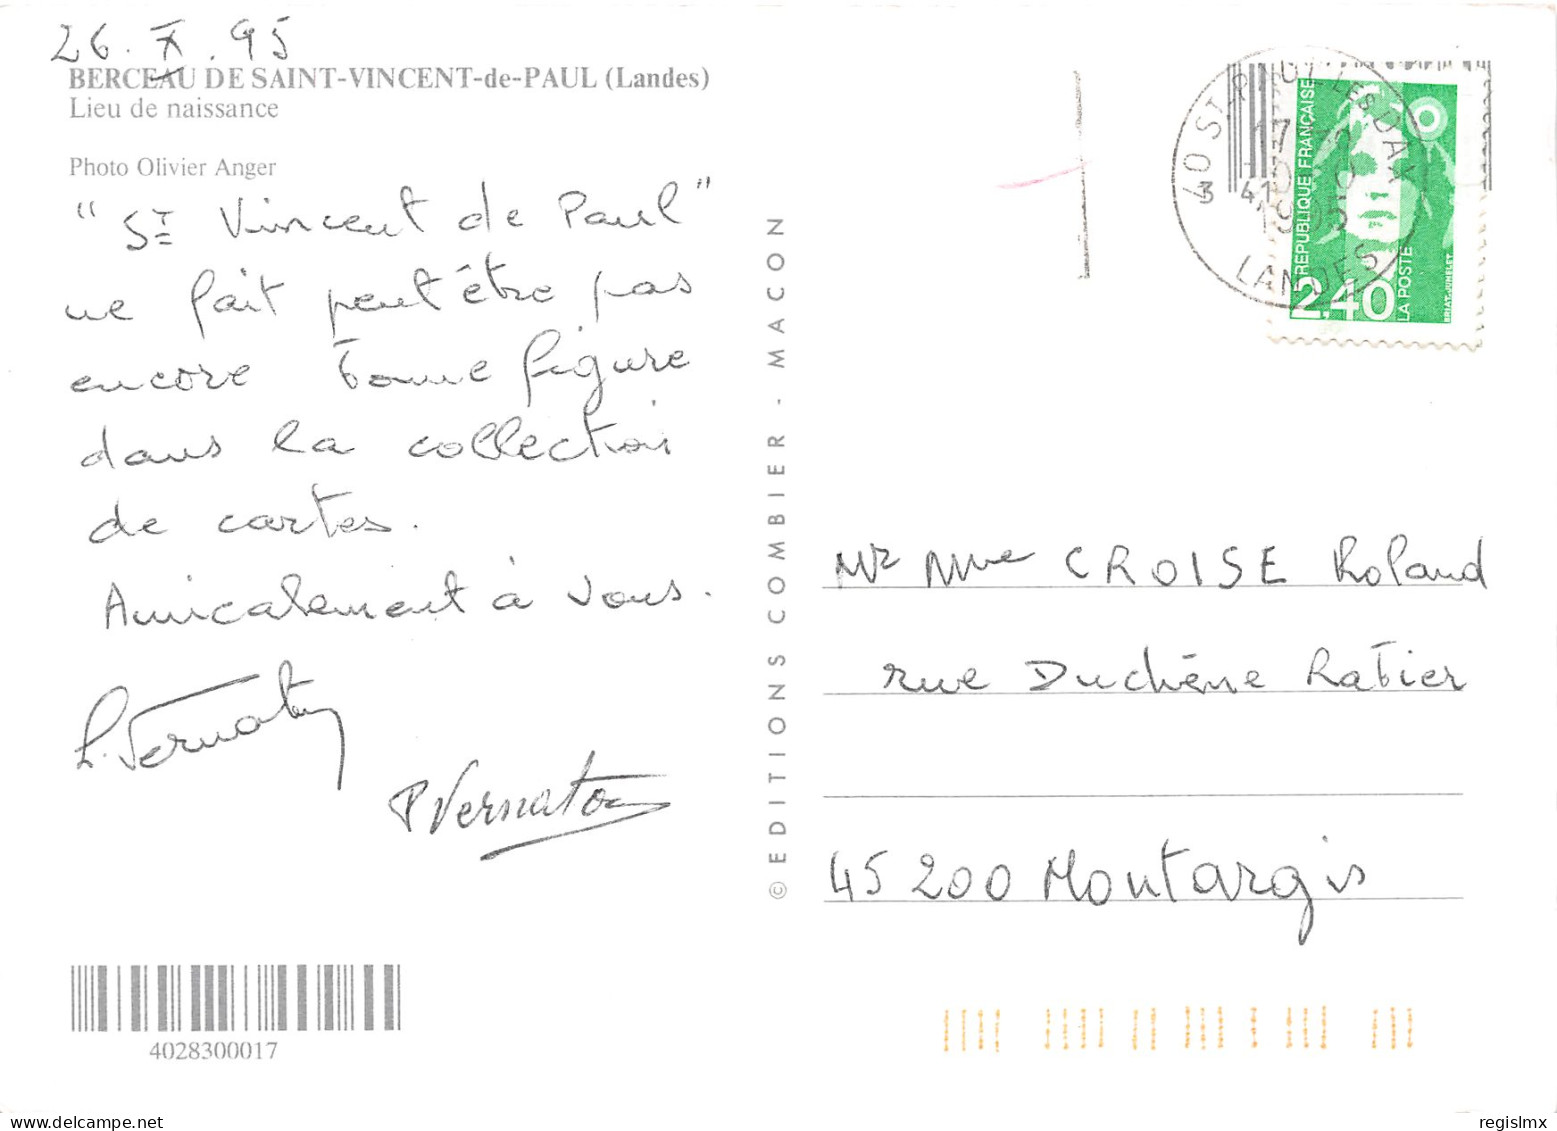 26. X. 95
BERCEAU DE SAINT-VINCENT-de-PAUL (Landes)
Lieu de naissance
Photo Olivier Anger
"St Vincent de Paul"
ne fait peut être pas
encore bonne figure
dans la collection
de cartes.
Amicalement à vous.
L. Vernaton
P Vernaton
4028300017
© EDITIONS COMBIER - MACON
40 ST-PAUL-LES-DAX
LANDES
1995
3 41
RÉPUBLIQUE FRANÇAISE
2,40
LA POSTE
BRIAT-JUMELET
Mr Mme CROISE Roland
rue Duchêne Ratier
45 200 Montargis
regislmx